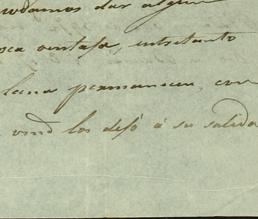 odamos dar algun
oca ventaja, entretanto
lana permanecen, con
vmd los dejó á su salida